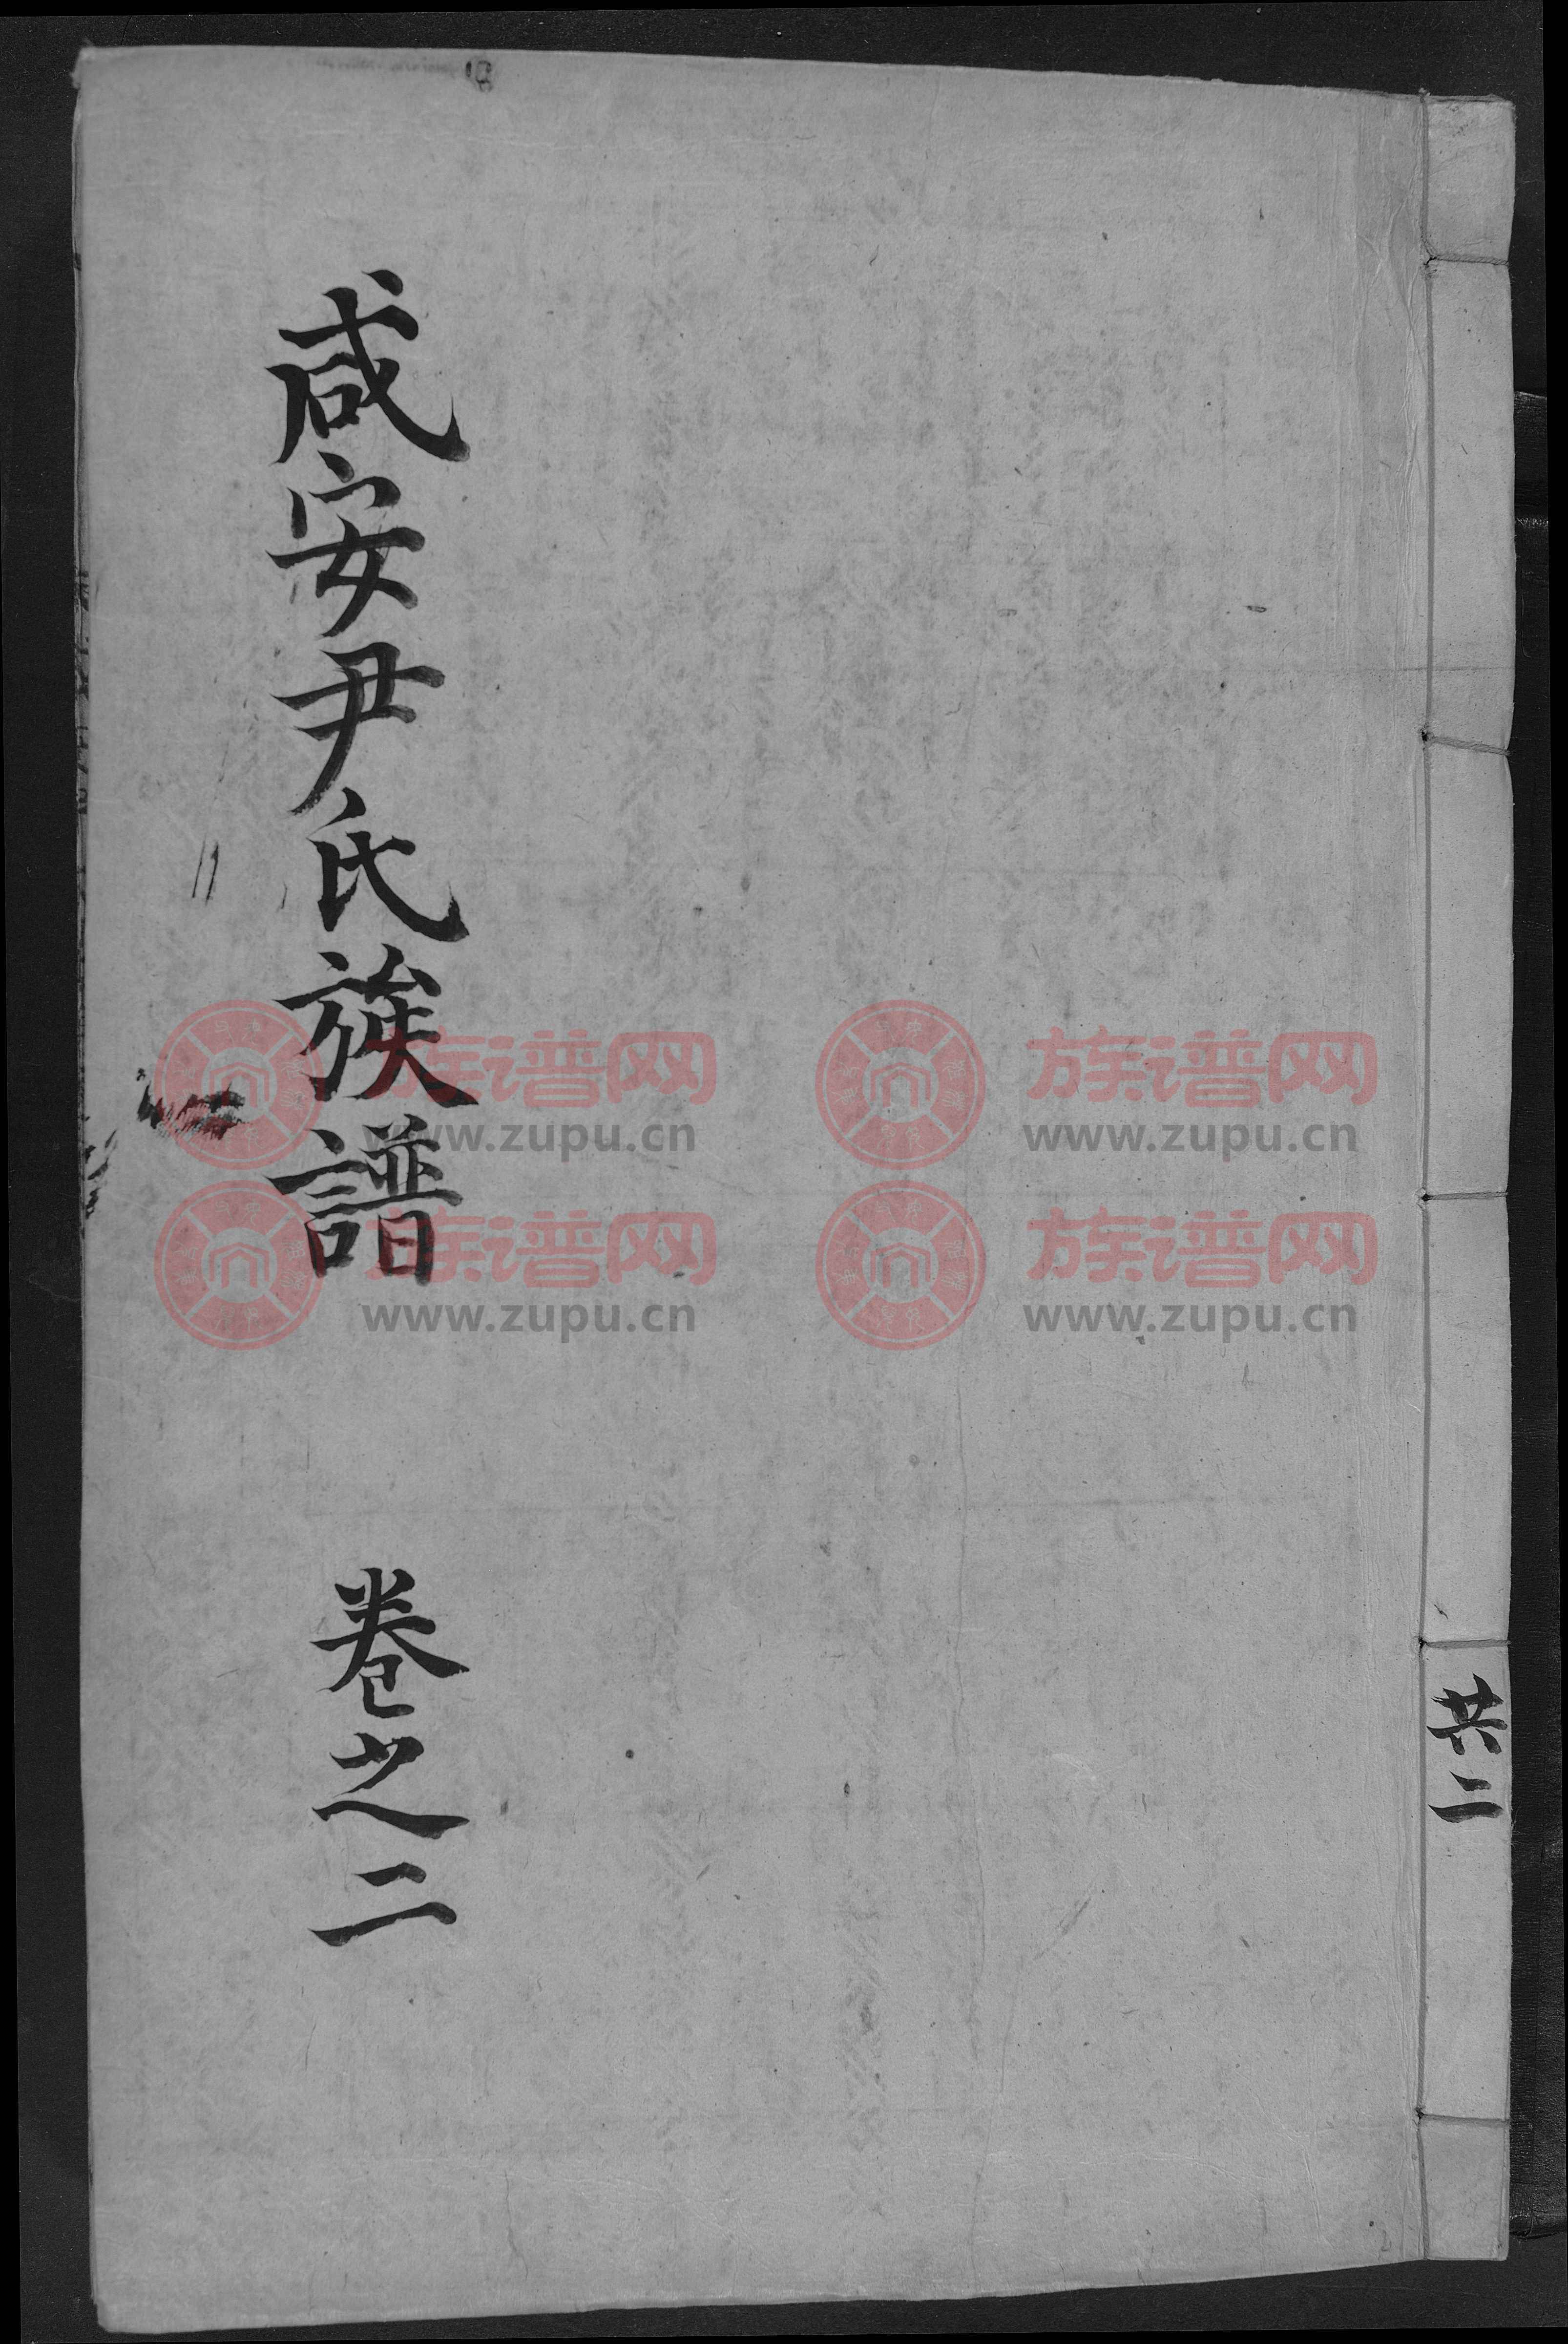 共二
咸安尹氏族譜 卷之二
族谱网 族谱网
www.zupu.cn www.zupu.cn
族谱网 族谱网
www.zupu.cn www.zupu.cn